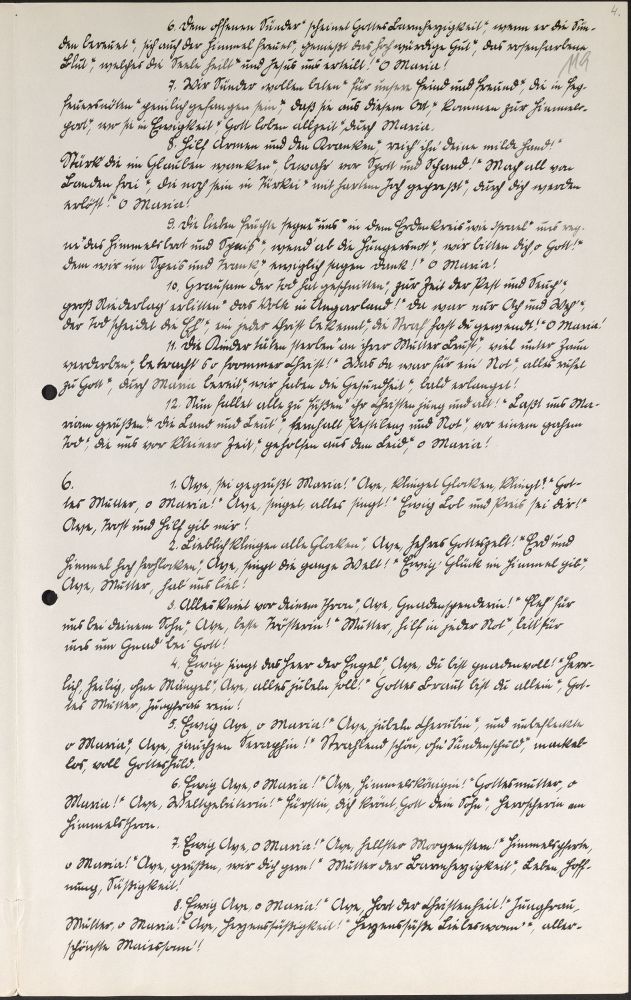 4.
119
6. Dem offenen Sünder" scheinet Gottes Barmherzigkeit", wenn er die Sün-
den bereuet", sich auch der Himmel freuet, genießt das hochwürdige Gut", das rosenfarbene
Blut", welches die Seele heilt" und Jesus uns erteilt!" O Maria!
7. Wir Sünder wollen beten" für unsere Feind und Freund", die in Feg-
feuersnöten" peinlich gefangen sein", daß sie aus diesem Ort" kommen zur Himmels-
port, wo sie in Ewigkeit" Gott loben allzeit" durch Maria.
8. Hilf Armen und den Kranken", reich' ihn' deine milde Hand!"
Stärk die im Glauben wanken", bewahr vor Spott und Schand!" Mach all von
Banden frei", die noch sein in Türkei" mit hartem Joch gepreßt", durch dich werden
erlöst!" O Maria!
9. Die lieben Früchte segne" uns" in dem Erdenkreis" wie Israel" uns reg-
ne" das Himmelsbrot und Speis", wend' ab die Hungersnot", wir bitten dich o Gott!"
dem wir um Speis und Trank" ewiglich sagen Dank!" O Maria!
10. Grausam der Tod hat geschnitten", zur Zeit der Pest und Seuch",
groß Niederlag' erlitten" das Volk in Ungarland!" Da war nur Ach und Weh",
der Tod scheidet die Eh'", ein jeder Christ bekennt", die Straf hast du gewendt!" O Maria!
11. Die Kinder täten sterben" an ihrer Mutter Brust", viel unter Zaun
verderben", betracht's o frommer Christ!" Was da war für ein' Not", alles rufet
zu Gott", durch Maria bereit" wir haben die Gesundheit", bald erlanget!
12. Nun fallet alle zu Füßen" ihr Christen jung und alt!" Laßt uns Ma-
riam grüßen", die Land und Leut", fernhalt Pestilenz und Not", vor einem gähen
Tod", die uns vor kleiner Zeit", geholfen aus dem Leid", o Maria!
6. 1. Ave, sei gegrüßt Maria!" Ave, klinget Glocken, klingt!" Got-
tes Mutter, o Maria!" Ave, singet, alles singt!" Ewig Lob und Preis sei dir!"
Ave, Trost und Hilf gib mir!
2. Lieblich klingen alle Glocken", Ave, hehres Gotteszelt!" Erd' und
Himmel hoch frohlocken", Ave, singt die ganze Welt!" Ewig' Glück im Himmel gib",
Ave, Mutter, hab' uns lieb!
3. Alles kniet vor deinem Thron", Ave, Gnadenspenderin!" Fleh' für
uns bei deinem Sohn", Ave, beste Trösterin!" Mutter, hilf in jeder Not", bitt für
uns um Gnad' bei Gott!
4. Ewig singt das Heer der Engel", Ave, du bist gnadenvoll!" Herr-
lich, heilig, ohne Mängel", Ave, alles jubeln soll!" Gottes Braut bist du allein", Got-
tes Mutter, Jungfrau rein!
5. Ewig Ave, o Maria!" Ave jubeln Cherubin", und unbefleckte
o Maria", Ave, jauchzen Seraphin!" Strahlend schön, ohn' Sündenschuld", makel-
los, voll Gotteshuld.
6. Ewig Ave, o Maria!" Ave, Himmelskönigin!" Gottesmutter, o
Maria!" Ave, Weltgebieterin!" Fürstin, dich krönt Gott dein Sohn", Herrscherin am
Himmelsthron.
7. Ewig Ave, o Maria!" Ave, hellster Morgenstern!" Himmelspforte,
o Maria!" Ave, grüßten, wir dich gern!" Mutter der Barmherzigkeit", Leben, Hoff-
nung, Süßigkeit!
8. Ewig Ave, o Maria!" Ave, Hort der Christenheit!" Jungfrau,
Mutter, o Maria!" Ave, Herzenssüßigkeit!" Herzenssüße Liebeswonn'", aller-
schönste Maiessonn'!